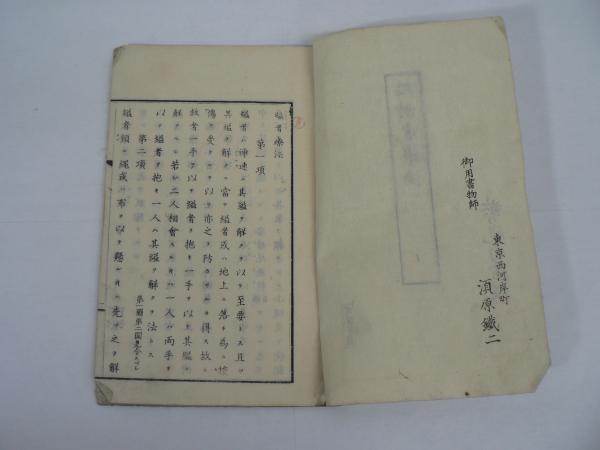 御用書物師
東京西河岸町
須原鐵二
縊者療法
第一項
縊者ハ神速ニ其縊ヲ解クヲ以テ至要トス且ツ
其縊ヲ解クニ當テ縊者或ハ地上ニ落チ為ニ
傷ヲ受ク以テ亦之ヲ防カサルヲ得ス故ニ
救者一手ヲ以テ縊者ヲ抱キ一手ヲ以テ其縊ヲ
解クヘシ若シ二人相會スルハ一人ハ両手ヲ
以テ縊者ヲ抱キ一人ハ其縊ヲ解クヲ法トス
第一圖第二圖見合スヘシ
第二項
縊者頸ニ繩或ハ布ヲ以テ懸ルハ先ツ之ヲ解